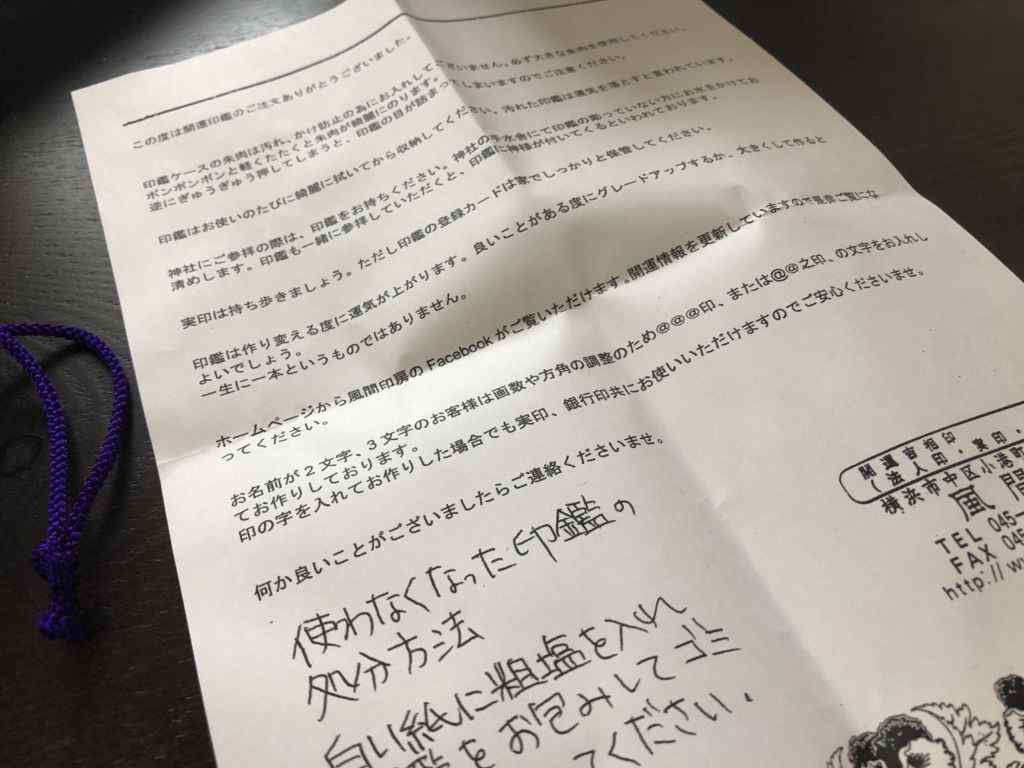 この度は開運印鑑のご注文ありがとうございました。
印鑑ケースの朱肉は汚れ、かけ防止の為にお入れしてございません。必ず大きな朱肉を使用してください。
ポンポンポンと軽くたたくと朱肉が綺麗にのります。
逆にぎゅうぎゅう押してしまうと、印鑑の目が詰まってしまいますのでご注意ください。
印鑑はお使いのたびに綺麗に拭いてから収納してください。汚れた印鑑は運気を落とすと言われています。
神社にご参拝の際は、印鑑をお持ちください。神社の手水舎にて印鑑の彫っていない方にお水をかけてお
清めします。印鑑も一緒に参拝していただくと、印鑑に神様が付いてくるといわれております。
実印は持ち歩きましょう。ただし印鑑の登録カードは家でしっかりと保管してください。
印鑑は作り変える度に運気が上がります。良いことがある度にグレードアップするか、大きくして作ると
よいでしょう。
一生に一本というものではありません。
ホームページから風間印房の Facebook がご覧いただけます。開運情報を更新していますので是非ご覧にな
ってください。
お名前が2文字、3文字のお客様は画数や方角の調整のため@@@印、または@@之印、の文字をお入れし
てお作りしております。
印の字を入れてお作りした場合でも実印、銀行印共にお使いいただけますのでご安心くださいませ。
何か良いことがございましたらご連絡くださいませ。
使わなくなった印鑑の
処分方法
白い紙に粗塩を入れ
印鑑をお包みしてゴミ
てください.
開運吉相印
(法人印・実印・
横浜市中区小港町
風間
TEL 045-
FAX 045
http://w